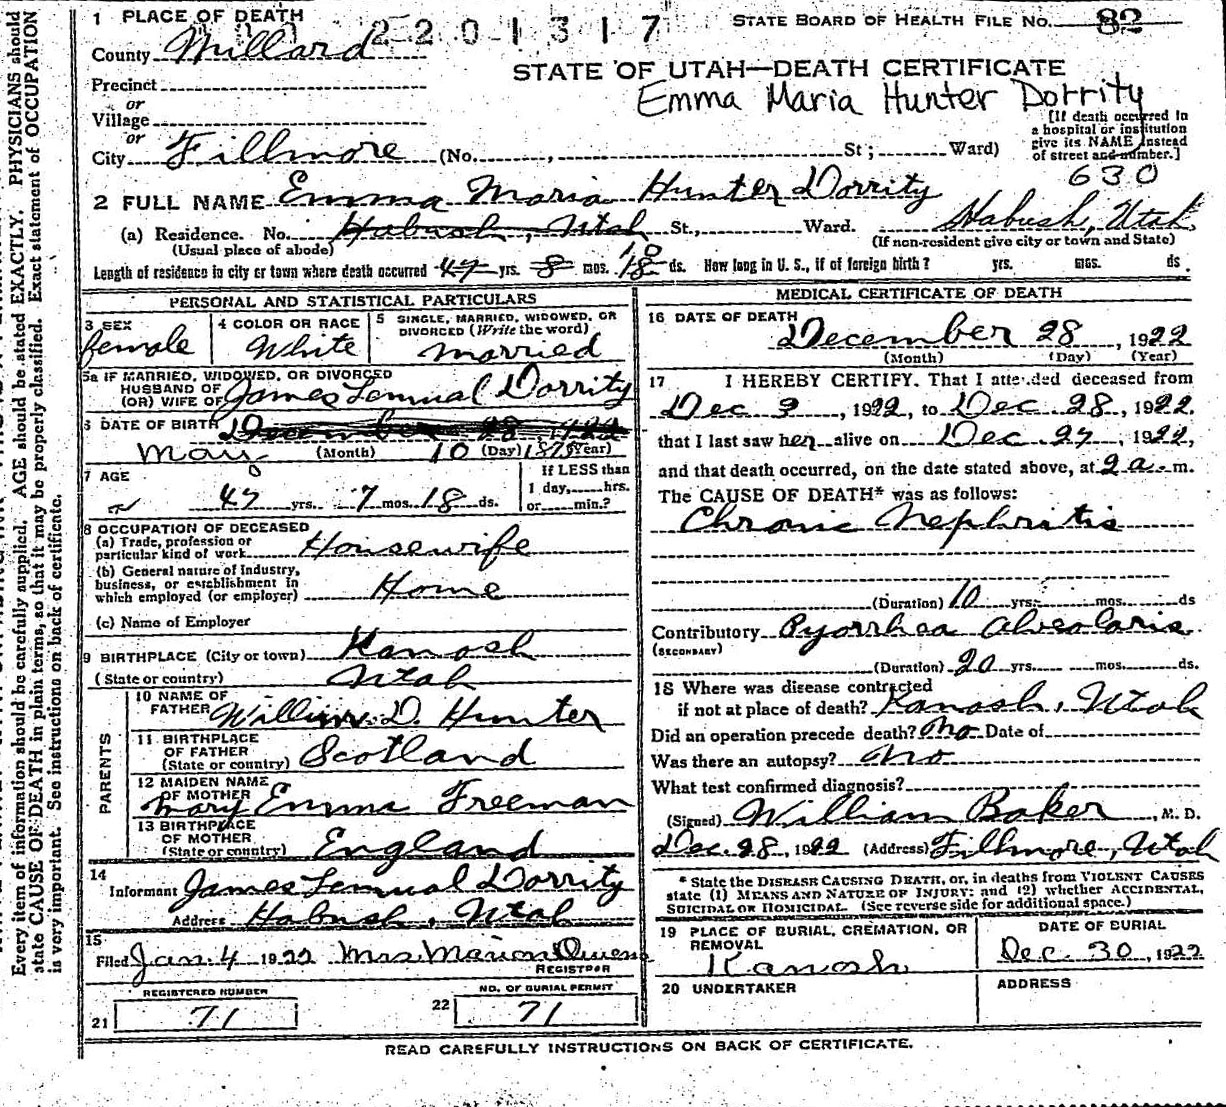 1 PLACE OF DEATH
2201317
STATE BOARD OF HEALTH FILE NO. 82
County Millard
STATE OF UTAH—DEATH CERTIFICATE
Precinct
Emma Maria Hunter Dorrity
or
Village
or
City Fillmore (No. , St; Ward)
[If death occurred in
a hospital or institution
give its NAME instead
of street and number.]
630
2 FULL NAME Emma Maria Hunter Dorrity
(a) Residence. No. Habush, Utah St., Ward. Habush, Utah
(Usual place of abode) (If non-resident give city or town and State)
Length of residence in city or town where death occurred 47 yrs. 8 mos. 18 ds. How long in U. S., if of foreign birth? yrs. mos. ds.
PERSONAL AND STATISTICAL PARTICULARS
3 SEX
female
4 COLOR OR RACE
White
5 SINGLE, MARRIED, WIDOWED, OR
DIVORCED (Write the word)
married
5a IF MARRIED, WIDOWED, OR DIVORCED
HUSBAND OF
(OR) WIFE OF James Lemual Dorrity
6 DATE OF BIRTH December 28 1922
May (Month) 10 (Day) (Year)
7 AGE
47 yrs. 7 mos. 18 ds.
If LESS than
1 day, hrs.
or min.?
8 OCCUPATION OF DECEASED
(a) Trade, profession or
particular kind of work Housewife
(b) General nature of Industry,
business, or establishment in
which employed (or employer) Home
(c) Name of Employer
9 BIRTHPLACE (City or town) Kanosh
(State or country) Utah
PARENTS
10 NAME OF
FATHER William D. Hunter
11 BIRTHPLACE
OF FATHER
(State or country) Scotland
12 MAIDEN NAME
OF MOTHER
Mary Emma Freeman
13 BIRTHPLACE
OF MOTHER
(State or country) England
14
Informant James Lemual Dorrity
Address Habush, Utah
15
Filed Jan. 4 1922 Mrs Marion Owens
REGISTRAR
REGISTERED NUMBER
21 71
NO. OF BURIAL PERMIT
22 71
MEDICAL CERTIFICATE OF DEATH
16 DATE OF DEATH
December 28, 1922
(Month) (Day) (Year)
17 I HEREBY CERTIFY. That I attended deceased from
Dec 9, 1922, to Dec 28, 1922.
that I last saw her alive on Dec. 27, 1922,
and that death occurred, on the date stated above, at 2 a. m.
The CAUSE OF DEATH* was as follows:
Chronic Nephritis
(Duration) 10 yrs. mos. ds
Contributory Pyorrhea Alveolaris
(SECONDARY)
(Duration) 20 yrs. mos. ds.
18 Where was disease contracted
if not at place of death? Kanosh, Utah
Did an operation precede death? No Date of
Was there an autopsy? No
What test confirmed diagnosis?
(Signed) William Baker, M. D.
Dec. 28, 1922 (Address) Fillmore, Utah
* State the DISEASE CAUSING DEATH, or, in deaths from VIOLENT CAUSES
state (1) MEANS AND NATURE OF INJURY: and (2) whether ACCIDENTAL,
SUICIDAL OR HOMICIDAL. (See reverse side for additional space.)
19 PLACE OF BURIAL, CREMATION, OR
REMOVAL
Kanosh
DATE OF BURIAL
Dec. 30, 1922
20 UNDERTAKER
ADDRESS
READ CAREFULLY INSTRUCTIONS ON BACK OF CERTIFICATE.
Every item of information should be carefully supplied. AGE should be stated EXACTLY. PHYSICIANS should
state CAUSE OF DEATH in plain terms, so that it may be properly classified. Exact statement of OCCUPATION
is very important. See instructions on back of certificate.